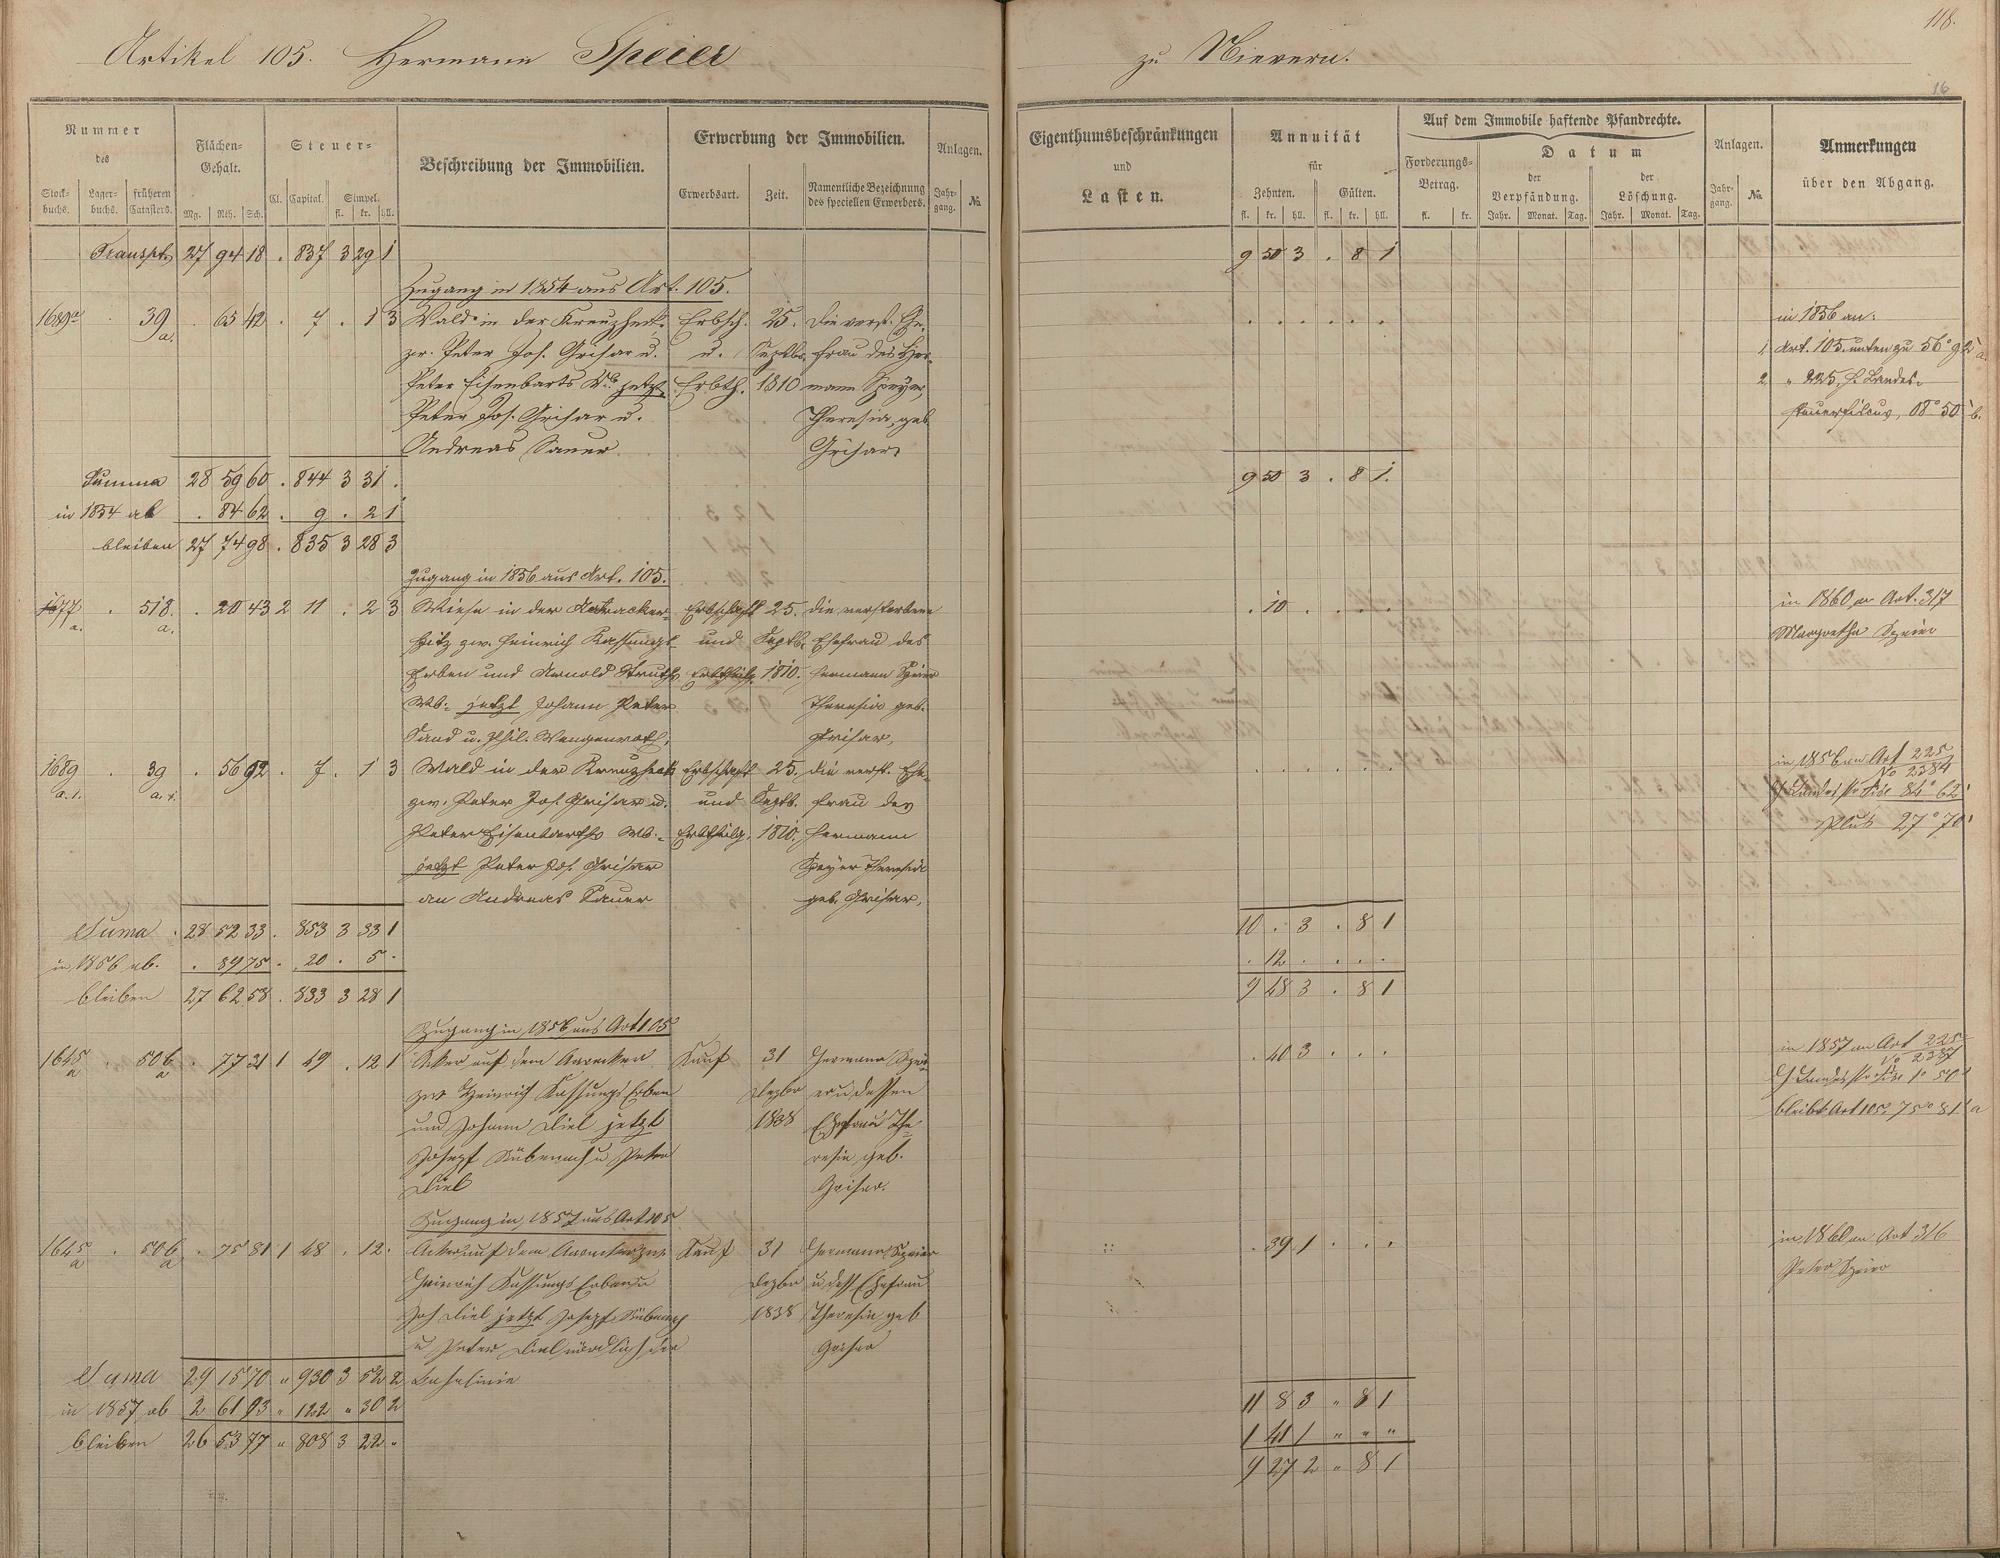 118.
Artikel 105. Hermann Speier zu Nievern.
16
Nummer des
Stockbuchs. Lagerbuchs. früheren Catasters.
Flächen-Gehalt.
Mg. Rth. Sch.
Steuer-
Cl. Capital. Simpel. fl. kr. hll.
Beschreibung der Immobilien.
Erwerbung der Immobilien.
Erwerbsart. Zeit. Namentliche Bezeichnung des speciellen Erwerbers.
Anlagen.
Jahrgang. No.
Eigenthumsbeschränkungen und Lasten.
Annuität für
Zehnten. Gülten.
fl. kr. hll. fl. kr. hll.
Auf dem Immobile haftende Pfandrechte.
Forderungs-Betrag. fl. kr.
Datum
der Verpfändung. Jahr. Monat. Tag.
der Löschung. Jahr. Monat. Tag.
Anlagen.
Jahrgang. No.
Anmerkungen über den Abgang.
Transpt. 27 94 18 . 837 3 29 1 9 50 3 . 8 1
Zugang in 1854 aus Art. 105.
1689 a . 39 a. . 65 42 . 7 . 1 3 Wald in der Kreuzheck Erbsch. 25. die verst. Ehe- in 1856 an:
zw. Peter Jos. Grisar u. u. Septbr. frau des Her- 1, Art. 105. unten zu 56° 92' a.
Peter Eisenbarts Wb. jetzt Erbth. 1810 mann Speyer, 2, " 225, H. Landes-
Peter Jos. Grisar u. Theresia, geb. 08° 50' b.
Andreas Sauer. Grisar.
Summa 28 59 60 . 844 3 31 . 9 50 3 . 8 1.
in 1854 ab . 84 62 . 9 . 2 1
bleiben 27 74 98 . 835 3 28 3
Zugang in 1856 aus Art. 105.
1677 a. . 518 a. . 20 43 2 11 . 2 3 Wiese in der Erbschaft 25. die verstorbene . 10 . . . . in 1860 an Art. 317
zw. Heinrich Kassungs und Septb. Ehefrau des Margretha Speier
Erben und Arnold Struth 1810. Hermann Speier
Wb. jetzt Johann Peter Theresia geb.
Sand u. Phil. Wengenroth, Grisar,
1689 a. 1. . 39 a. 1. . 56 92 . 7 . 1 3 Wald in der Kreuzheck Erbschaft 25. die verst. Ehe- in 1856 an Art 225
No 2384
zw. Peter Jos. Grisar u. und Septb. frau des 84° 62'
Peter Eisenbarths Wb. 1810. Hermann 27° 70'
jetzt Peter Jos. Grisar Speyer Theresia
an Andreas Sauer geb. Grisar,
Suma . 28 52 33 . 853 3 33 1 10 . 3 . 8 1
in 1856 ab. . 89 75 . 20 . 5 . . 12 . . . .
bleiben 27 62 58 . 833 3 28 1 9 48 3 . 8 1
Zugang in 1856 aus Art 105
1645 a . 506 a . 77 31 1 49 . 12 1 Acker auf dem Kauf 31 Hermann Spei- . 40 3 . . . in 1857 an Art 225
No 2387
zw Heinrich Kassungs Erben Dezbr er u dessen 1° 50'
und Johann Diel jetzt 1838 Ehefrau The- bleibt Art 105. 75° 81' a
Josepf u Peter resia geb.
Diel Grisar.
Zugang in 1857 aus Art 105
1645 a . 506 a . 75 81 1 48 . 12 . Acker auf dem zw Kauf 31 Hermann Speier . 39 1 . . . in 1860 an Art 316
Heinrich Kassungs Erben u Dezbr u dess Ehefrau Peter Speier
Joh Diel jetzt Josepf 1838 Theresia geb
u Peter Diel nördlich der Grisar
Suma 29 15 70 " 930 3 52 2 Baselinie 11 8 3 " 8 1
in 1857 ab 2 61 93 " 122 " 30 2 1 41 1 " " "
bleiben 26 53 77 " 808 3 22 " 9 27 2 " 8 1